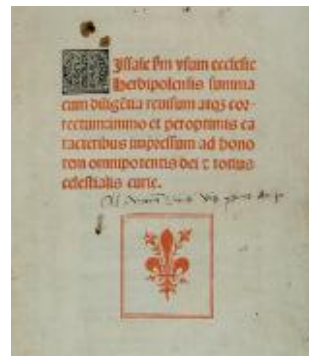 Missale s'm vsum ecclesie
Herbipolensis summa
cum diligētia reuisum atqz cor-
rectum
et peroptimis ca
racteribus impressum ad hono
rem omnipotentis dei τ totius
celestialis curie.